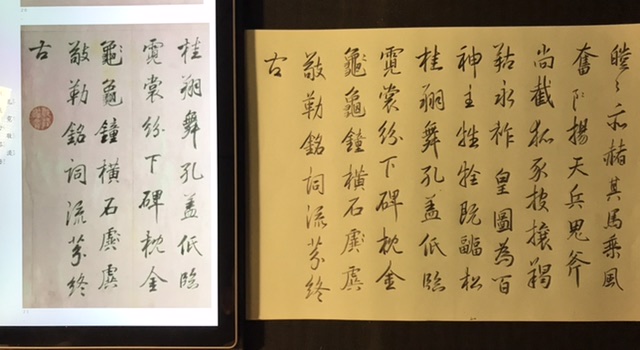 桂翔舞孔盖低臨
霓裳紛下碑枕金
龜鐘橫石虡虡
敬勒銘詞流芬終
古
示赭其馬乘風
奮仁揚天兵鬼斧
尚截狐豕披攘羯
永祚皇圖為百
神主牲牷既副松
桂翔舞孔盖低臨
霓裳紛下碑枕金
龜鐘橫石虡虡
敬勒銘詞流芬終
古